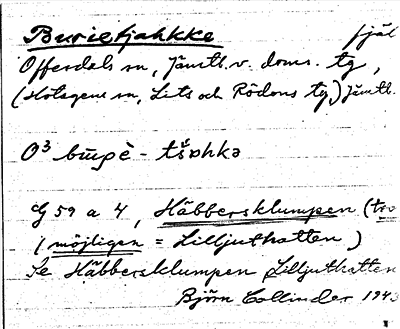 Buriekjahkke fjäl
Offerdals sn, Jämtl. v. doms. tg,
(Hotagens sn, Lits och Rödöns tg,) Jämtl.
O³
G 59 a 4, Häbbersklumpen (tro
(möjligen = Lilljuthatten)
Se Häbbersklumpen Lilljuthatten
Björn Collinder 1943